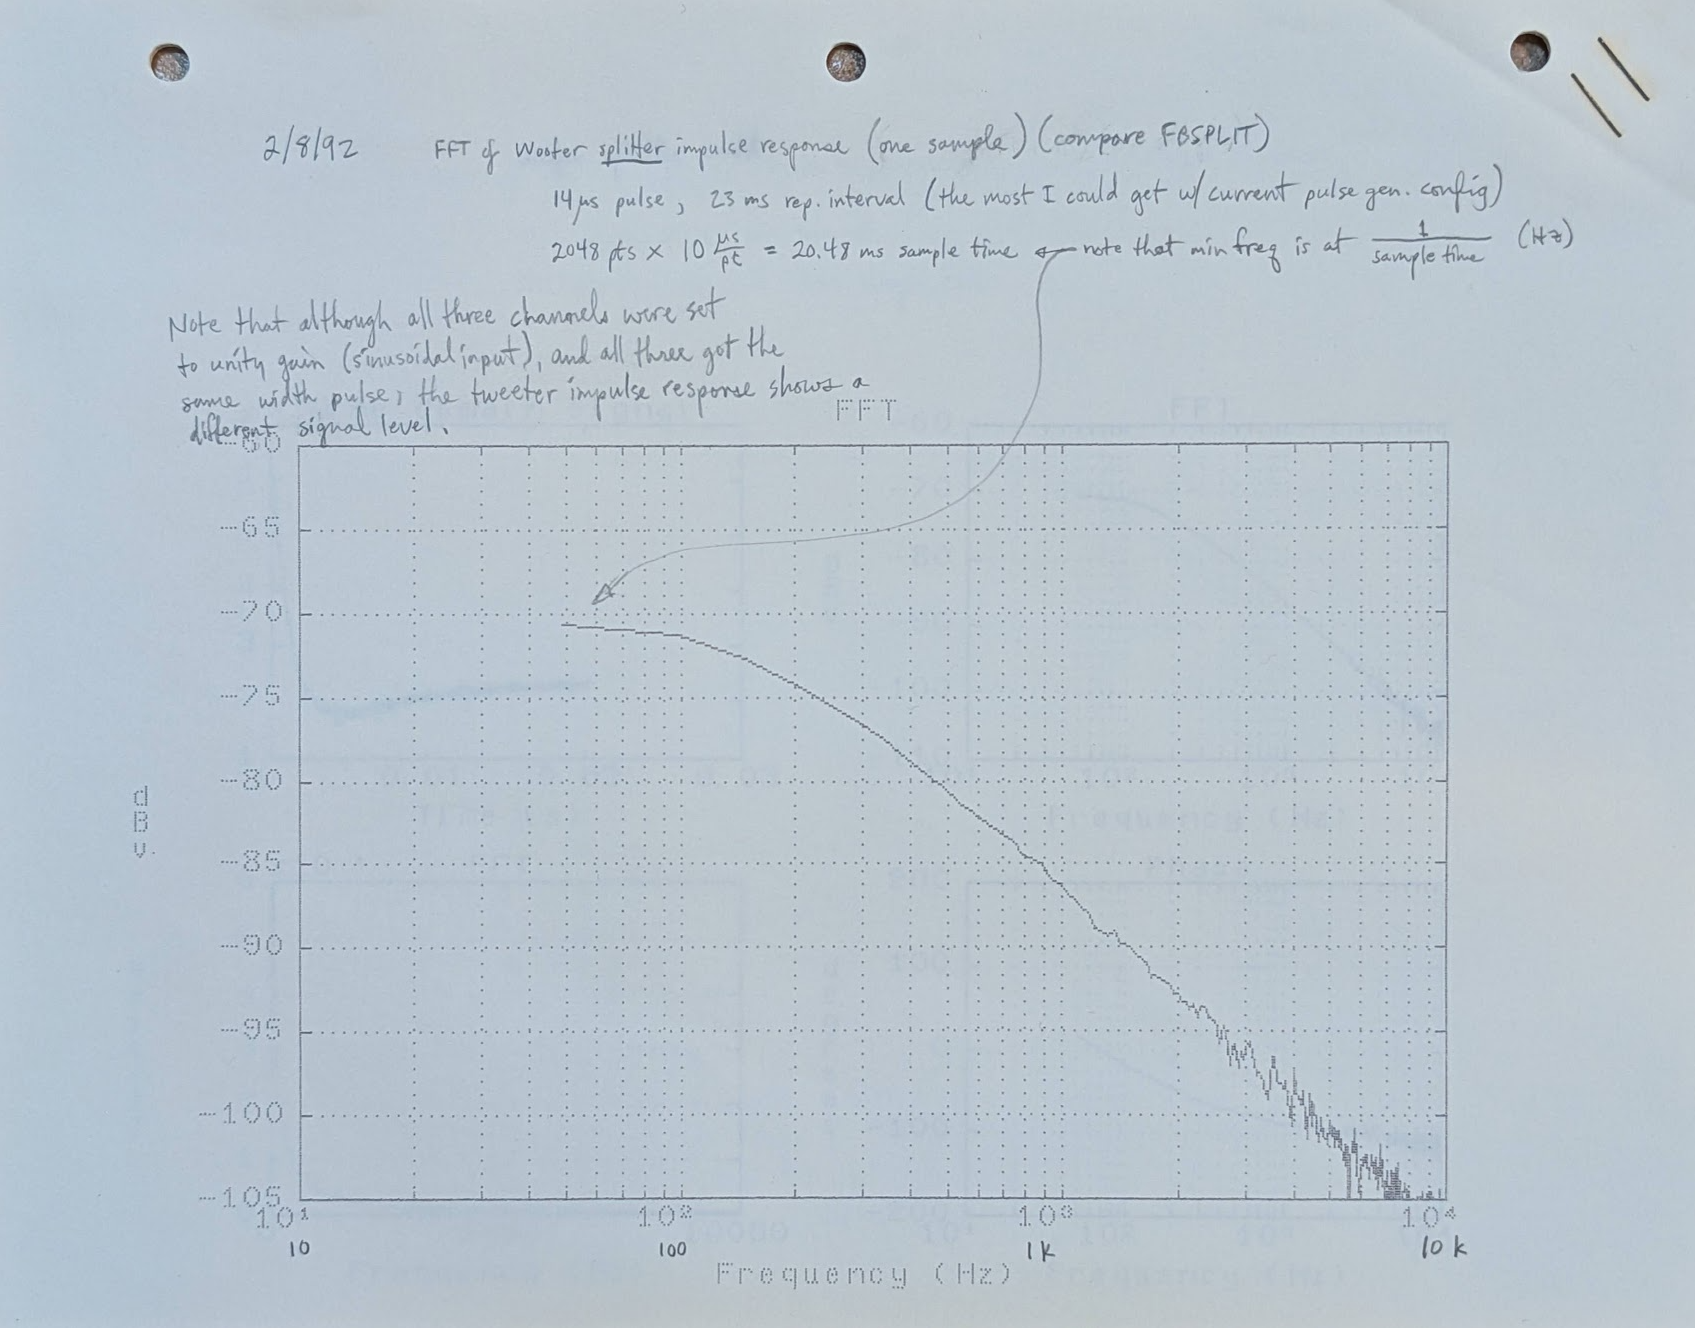 2/8/92 FFT of Woofer splitter impulse response (one sample) (compare FBSPLIT)
14 µs pulse, 23 ms rep. interval (the most I could get w/ current pulse gen. config)
2048 pts × 10 µs/pt = 20.48 ms sample time ← note that min freq is at 1/sample time (Hz)
Note that although all three channels were set
to unity gain (sinusoidal input), and all three got the
same width pulse, the tweeter impulse response shows a
different signal level.
FFT
-60
-65
-70
-75
-80
-85
-90
-95
-100
-105
dBv.
10¹ 10² 10³ 10⁴
10 100 1k 10k
Frequency (Hz)